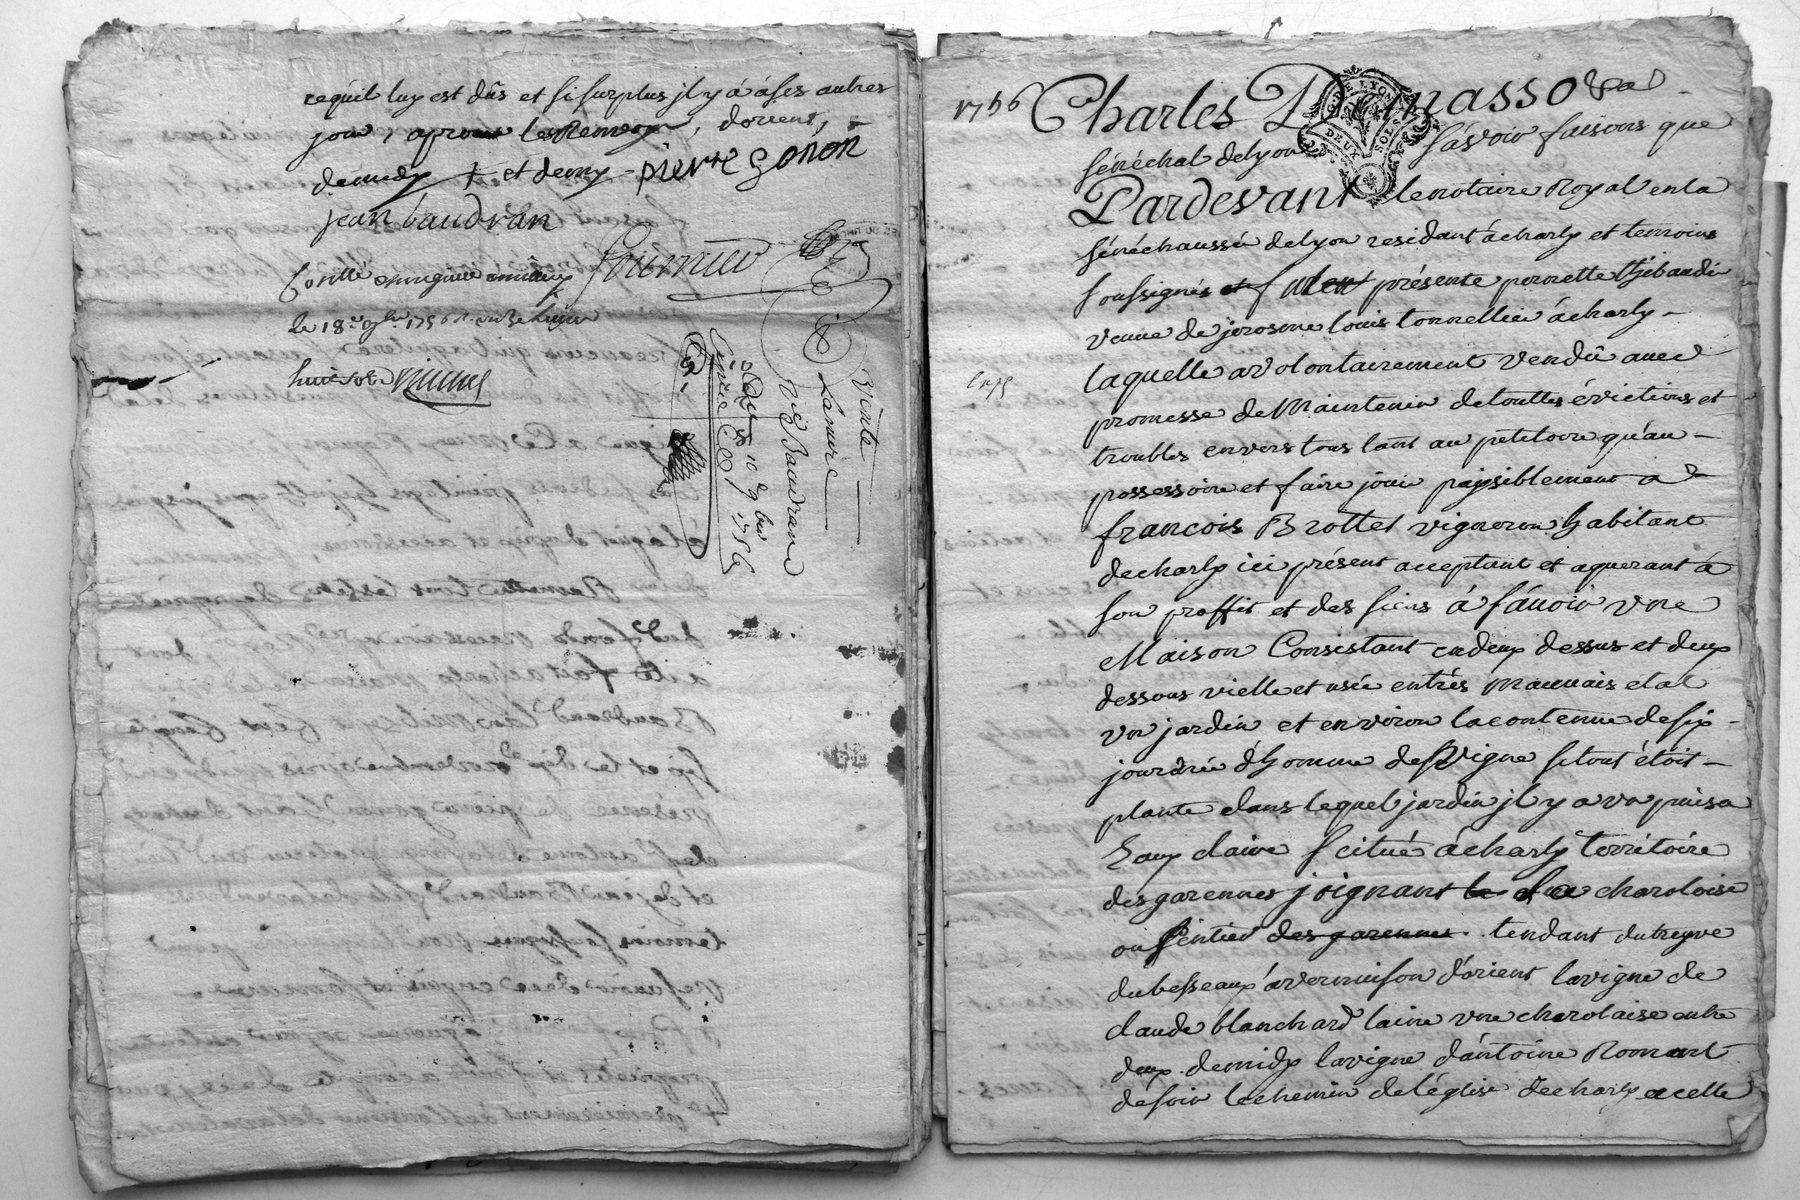 cequil luy est dûs et si surplus jl y á à ses autres
jour, aprouvé les Renvoys, d'orient,
de midy et demy pierre gonon
jean baudran
fournier
Contrôlé
le 18e 9bre 1756
huit sols
Vente
Lamure
Baudran
Du 10 9bre 1756
Expédié
1756 Charles D masso
G. DE LYON
DEUX SOLS
sénéchal de lyon sávoir faisons que
Pardevant le notaire Royal en la
sénéchaussée de lyon residant à charly et temoins
soussignés et f présente pernette thibaudier
veuve de jerosme louis tonnellier à charly
laquelle a volontairement vendû avec
promesse de Maintenir de touttes évictions et
troubles envers tous tant au petitoire qu'au
possessoire et faire jouir paysiblement a
françois Brottet vigneron habitant
de charly ici présent acceptant et aquerant à
son proffit et des siens á sávoir une
Maison Consistant en deux dessus et deux
dessous vielle et usée en trés Mauvais etat
un jardin et environ la contenue de six
journée d'homme de Vigne si tout étoit
planté dans lequel jardin jl y a un puis a
Eaux claire scitué à charly territoire
des garennes joignant le la charoloise
ou sentier des garennes tendant du treyve
du besseaux à vernaison d'orient la vigne de
claude blanchard l'ainé une charolaise entre
deux de midy la vigne d'antoine Romant
de soir le chemin de l'église de charly a celle